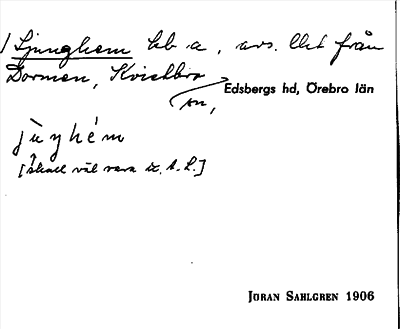 Ljunghem hb a, avs. lht från
Dormen, Kvistbro
sn, Edsbergs hd, Örebro län
jùŋhém
[skall väl vara ... A. L.]
JÖRAN SAHLGREN 1906